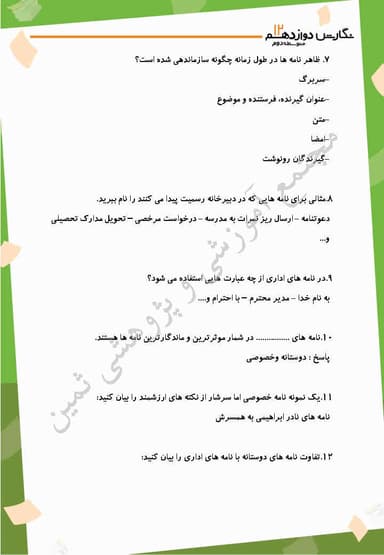 نگارش دوازدهم ۱۲
متوسطه دوم
۷. ظاهر نامه ها در طول زمانه چگونه سازماندهی شده است؟
-سربرگ
-عنوان گیرنده، فرستنده و موضوع
-متن
-امضا
-گیرندگان رونوشت
۸.مثالی برای نامه هایی که در دبیرخانه رسمیت پیدا می کنند را نام ببرید.
دعوتنامه - ارسال ریز نمرات به مدرسه - درخواست مرخصی – تحویل مدارک تحصیلی
و...
۹.در نامه های اداری از چه عبارت هایی استفاده می شود؟
به نام خدا - مدیر محترم – با احترام و....
۱۰.نامه های ................ در شمار موثرترین و ماندگارترین نامه ها هستند.
پاسخ : دوستانه وخصوصی
۱۱.یک نمونه نامه خصوصی اما سرشار از نکته های ارزشمند را بیان کنید:
نامه های نادر ابراهیمی به همسرش
۱۲.تفاوت نامه های دوستانه با نامه های اداری را بیان کنید:
مجتمع آموزشی و پژوهشی ثمین